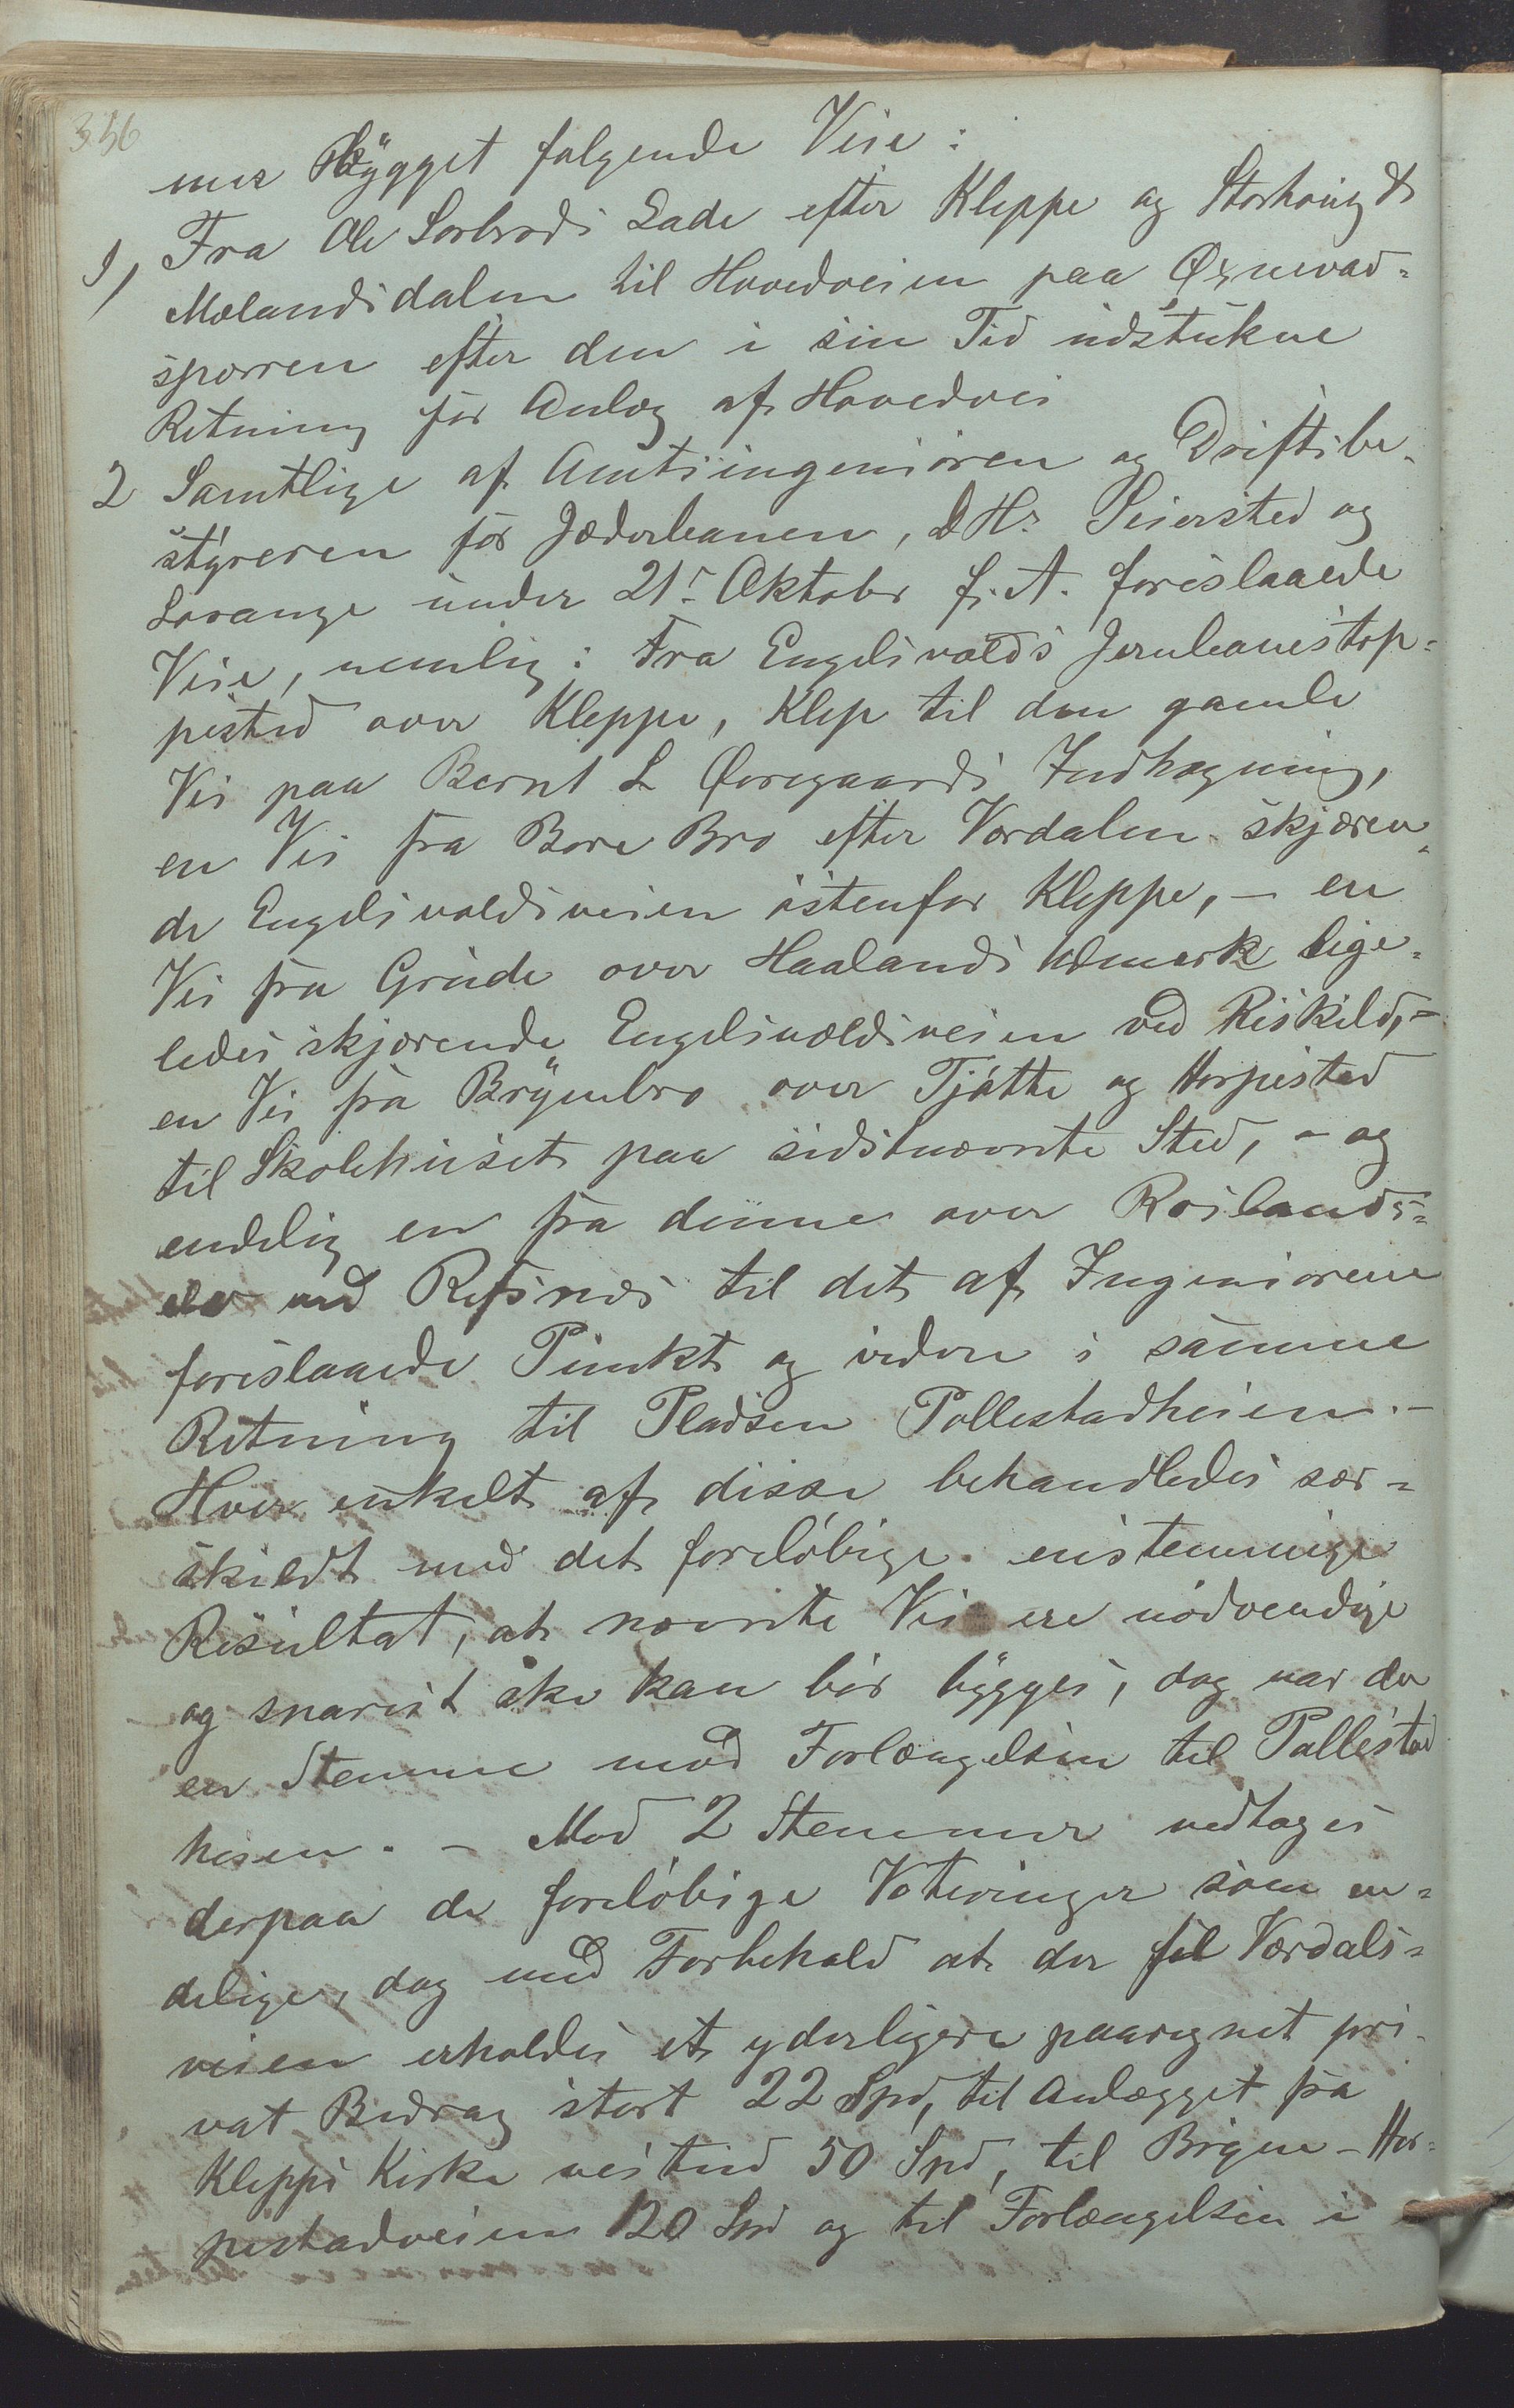 356
mes Bygget følgende Veie:
1, Fra Ole Sørbrøds Lade efter Kleppe og Storhoug &
Mælandsdalen til Hovedveien paa Øxnevad-
sporren efter den i sin Tid udstukne
Retning for Anlæg af Hovedvei
2 Samtlige af Amtsingeniøren og Driftsbe-
styreren for Jæderbanen, DHr. Seiersted og
Lorange under 21de Oktober f. A. foreslaaede
Veie, nemlig: Fra Engelsvolds Jernbanestop-
pested over Kleppe, Klep til den gamle
Vei paa Bernt L Øvregaards Indhegning,
en Vei fra Bore Bro efter Vardalen skjæren-
de Engelsvoldsveien østenfor Kleppe, - en
Vei fra Grude over Haalands Udmark lige-
ledes skjærende Engelsvoldsveien ved Riskild, -
en Vei fra Brynebro over Tjøtte og Horpestad
til Skolehuset paa sidstnævnte Sted, - og
endelig en fra denne over Roslands-
elv ved Refsnæs til det af Ingeniørene
foreslaaede Punkt og videre i samme
Retning til Pladsen Pollestadheien. -
Hver enkelt af disse behandledes sær-
skildt med det foreløbige enstemmige
Resultat, at nævnte Veie ere nødvendige
og snarest ske kan bør bygges, dog var der
en Stemme mod Forlængelsen til Pollestad
heien. - Mod 2 Stemmer vedtages
derpaa de foreløbige Voteringer som en-
delige, dog med Forbehold at der til Vardals-
veien erholdes et yderligere paaregnet pri-
vat Bidrag stort 22 Spd, til Anlægget fra
Klepps Kirke vestud 50 Spd, til Bryne-Hor-
pestadveien 120 Spd og til Forlængelsen i